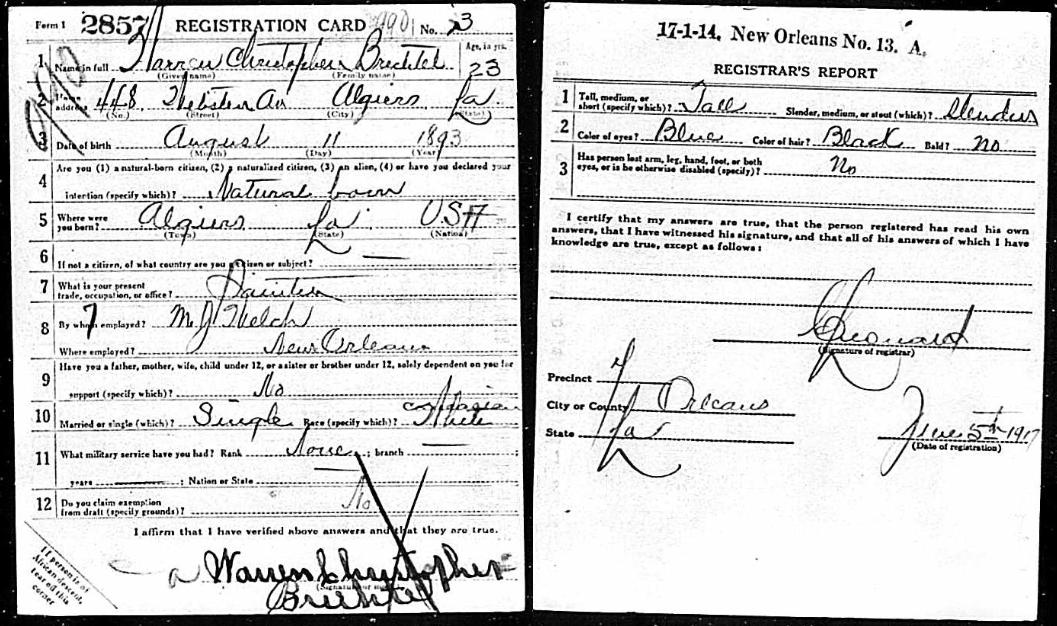 Form 1 2857 REGISTRATION CARD No. 23
1 Name in full Warren Christopher Brechtel Age, in yrs. 23
(Given name) (Family name)
2 Home address 448 Webster Av Algiers La
(No.) (Street) (City) (State)
3 Date of birth August 11 1893
(Month) (Day) (Year)
Are you (1) a natural-born citizen, (2) a naturalized citizen, (3) an alien, (4) or have you declared your
4 intention (specify which)? Natural born
5 Where were you born? Algiers La USA
(Town) (State) (Nation)
6 If not a citizen, of what country are you a citizen or subject? —
7 What is your present trade, occupation, or office? Painter
8 By whom employed? M J Welch
Where employed? New Orleans
9 Have you a father, mother, wife, child under 12, or a sister or brother under 12, solely dependent on you for
support (specify which)? No
10 Married or single (which)? Single Race (specify which)? White
11 What military service have you had? Rank None ; branch
years ; Nation or State
12 Do you claim exemption from draft (specify grounds)? No
I affirm that I have verified above answers and that they are true.
Warren Christopher
Brechtel
If person is of
African descent,
tear off this
corner
17-1-14. New Orleans No. 13. A.
REGISTRAR'S REPORT
1 Tall, medium, or short (specify which)? Tall Slender, medium, or stout (which)? Slender
2 Color of eyes? Blue Color of hair? Black Bald? no
3 Has person lost arm, leg, hand, foot, or both eyes, or is he otherwise disabled (specify)? No
I certify that my answers are true, that the person registered has read his own
answers, that I have witnessed his signature, and that all of his answers of which I have
knowledge are true, except as follows:
(Signature of registrar)
Precinct
City or County Orleans
State La
June 5th 1917
(Date of registration)